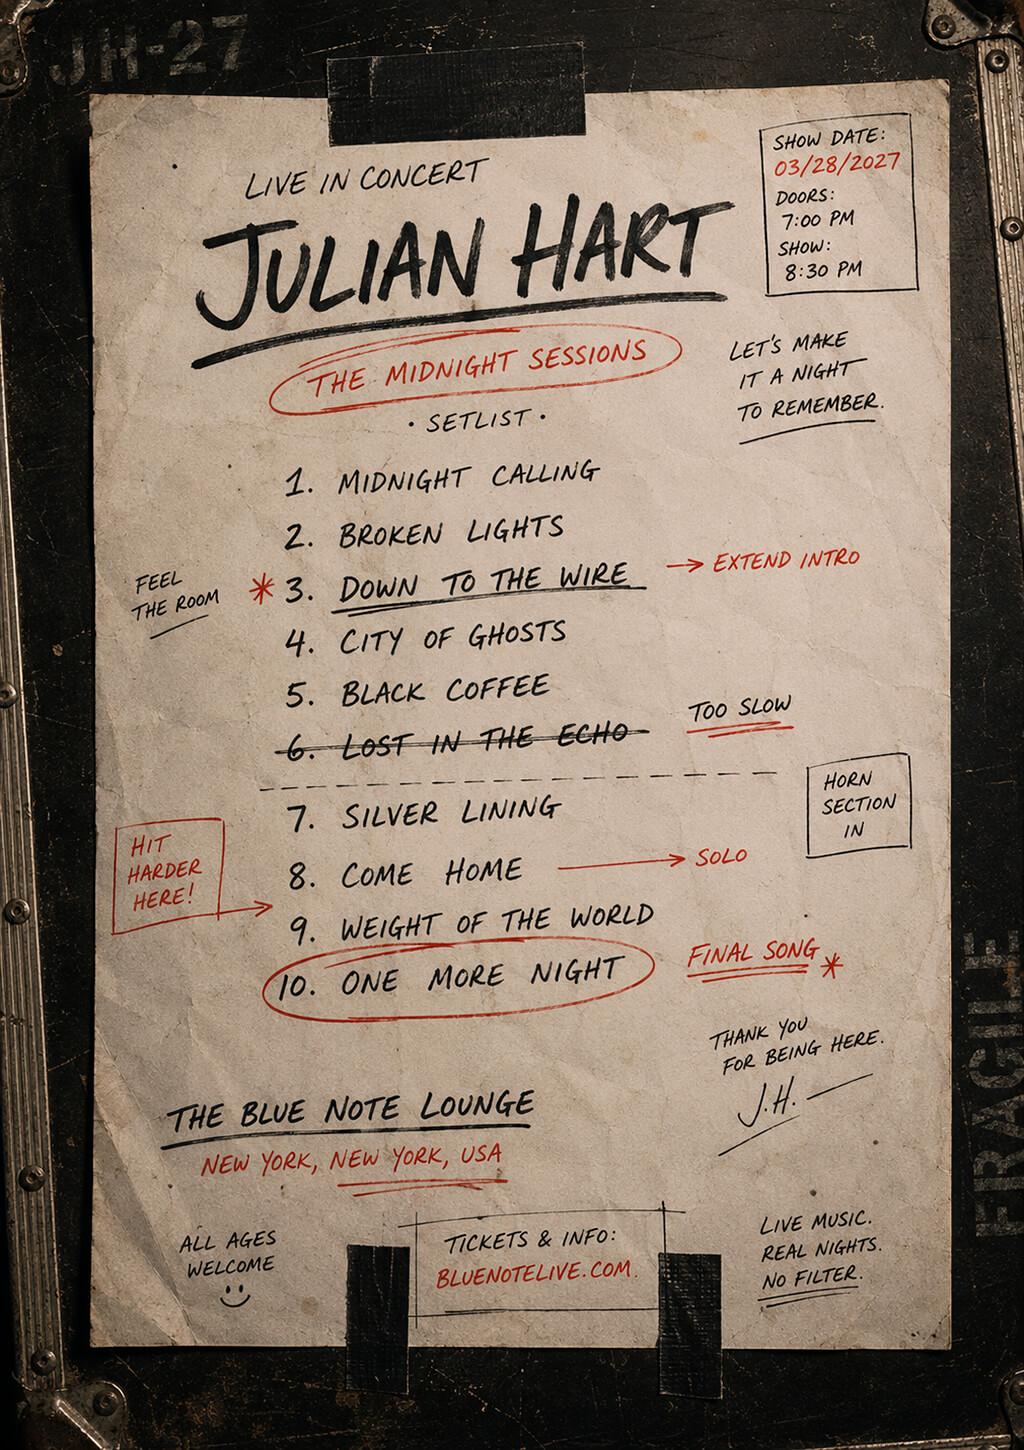 JH-27
LIVE IN CONCERT
JULIAN HART
SHOW DATE:
03/28/2027
DOORS:
7:00 PM
SHOW:
8:30 PM
THE MIDNIGHT SESSIONS
LET'S MAKE
IT A NIGHT
TO REMEMBER.
• SETLIST •
1. MIDNIGHT CALLING
2. BROKEN LIGHTS
FEEL
THE ROOM
* 3. DOWN TO THE WIRE → EXTEND INTRO
4. CITY OF GHOSTS
5. BLACK COFFEE
6. LOST IN THE ECHO
TOO SLOW
7. SILVER LINING
HORN
SECTION
IN
HIT
HARDER
HERE!
8. COME HOME → SOLO
9. WEIGHT OF THE WORLD
10. ONE MORE NIGHT
FINAL SONG *
THANK YOU
FOR BEING HERE.
J.H. —
FRAGILE
THE BLUE NOTE LOUNGE
NEW YORK, NEW YORK, USA
ALL AGES
WELCOME
TICKETS & INFO:
BLUENOTELIVE.COM
LIVE MUSIC.
REAL NIGHTS.
NO FILTER.